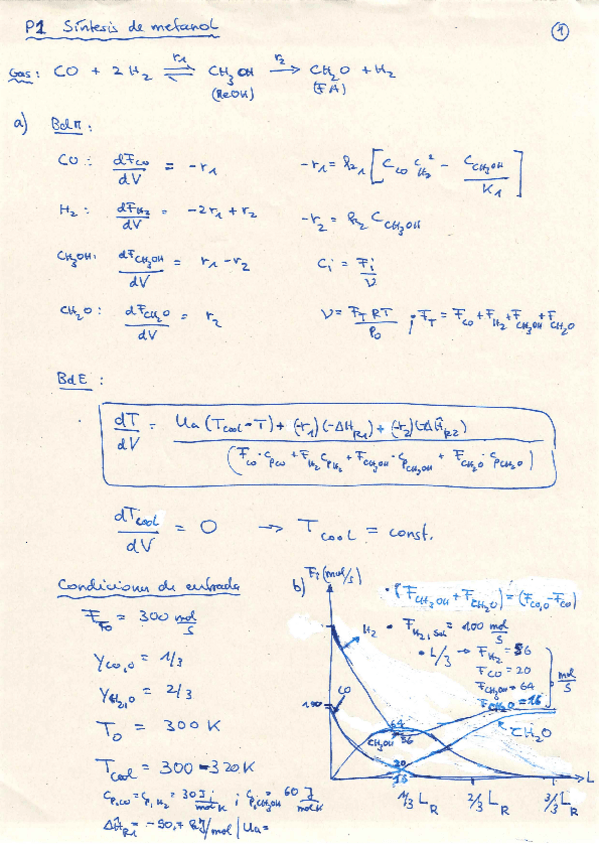 P1 Síntesis de metanol
1
Gas: CO + 2 H2 ⇌ CH3OH → CH2O + H2
r1 r2
(MeOH) (FA)
a) BdM:
CO: dF_CO/dV = -r1    -r1 = k1 [C_CO C_H2^2 - C_CH3OH/K1]
H2: dF_H2/dV = -2r1 + r2    -r2 = k2 C_CH3OH
CH3OH: dF_CH3OH/dV = r1 - r2    Ci = Fi/v
CH2O: dF_CH2O/dV = r2    v = F_T RT/P0 ; F_T = F_CO + F_H2 + F_CH3OH + F_CH2O
BdE:
dT/dV = Ua (Tcool - T) + (-r1)(-ΔH_R1) + (-r2)(-ΔH_R2) / (F_CO · Cp_CO + F_H2 Cp_H2 + F_CH3OH · Cp_CH3OH + F_CH2O · Cp_CH2O)
dTcool/dV = 0 → Tcool = const.
Condiciones de entrada
F_T0 = 300 mol/s
y_CO,0 = 1/3
y_H2,0 = 2/3
T0 = 300 K
Tcool = 300-320K
Cp,CO = Cp,H2 = 30 J/mol K ; Cp,CH3OH = 60 J/mol K
ΔH_R1 = -90,7 kJ/mol | Ua =
b) Fi (mol/s)
• (F_CH3OH + F_CH2O) = (F_CO,0 - F_CO)
• F_H2,sal = 100 mol/s
• L/3 → F_H2 = 56
F_CO = 20
F_CH3OH = 64
F_CH2O = 16
mol/s
H2
100
CO
64
56
CH3OH
CH2O
20
16
L
1/3 L_R 2/3 L_R 3/3 L_R